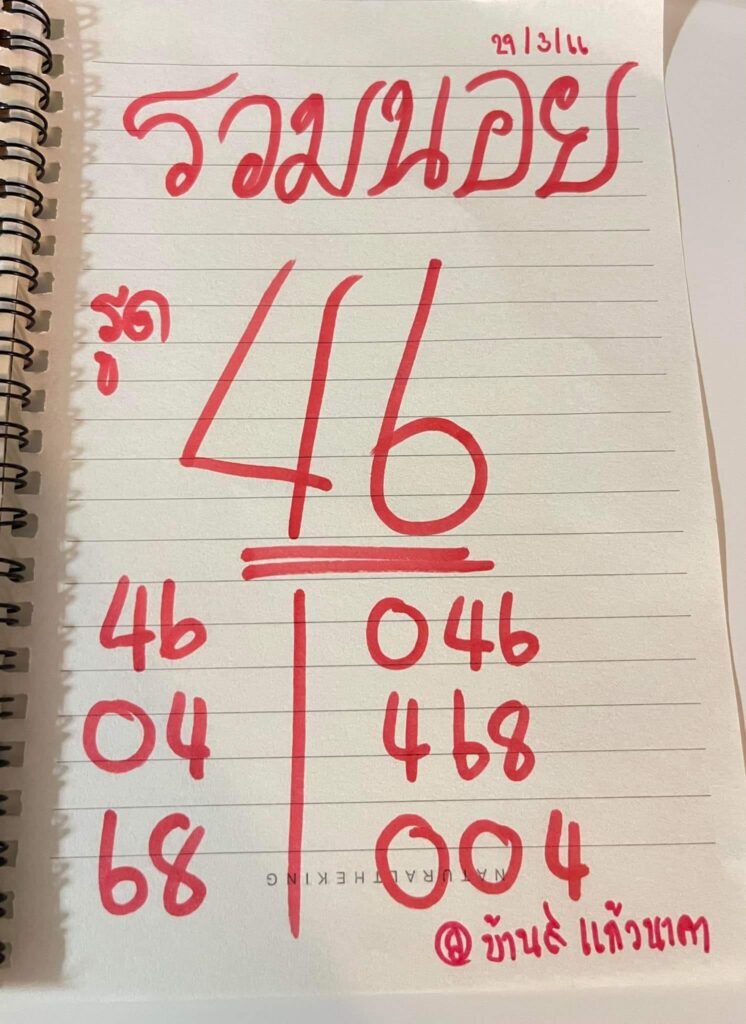 29/3/66
รวมนอย
รูด
46
46 046
04 468
68 004
NATURALTHEKING
@ แก้วนาคา